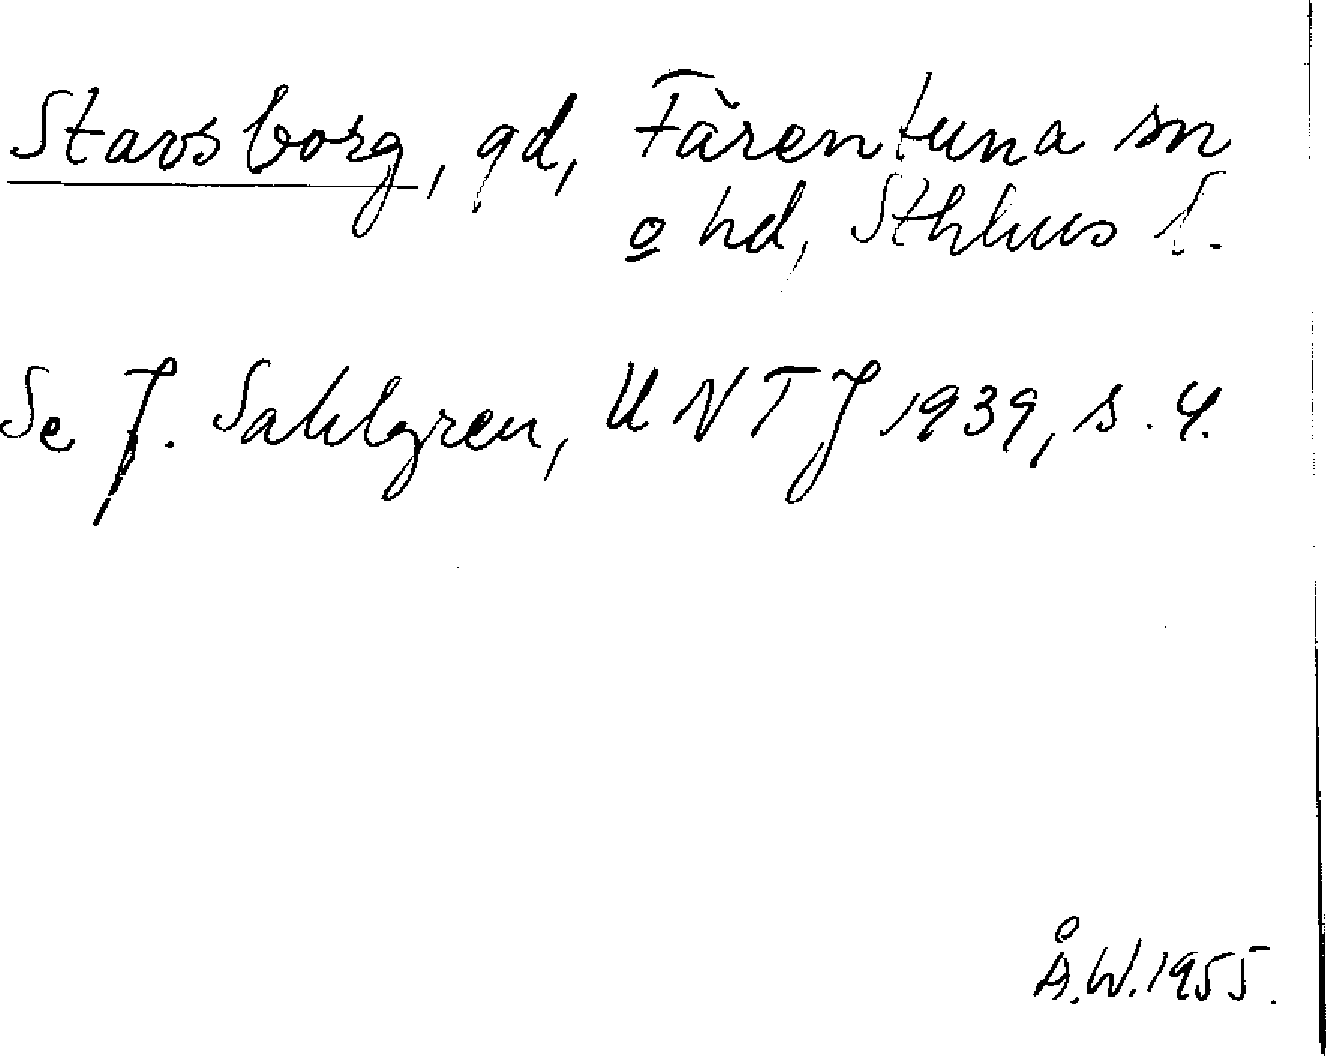 Stavsborg, gd, Färentuna sn
o hd, Sthlms l.
Se J. Sahlgren, UNTJ 1939, s. 4.
Å.W. 1955.